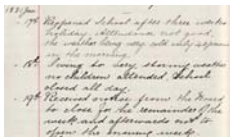 1881 Jan
17th Reopened School after three weeks
holiday. Attendance not good,
the weather being very cold only
in the morning.
18th Owing to very stormy weather
no children attended School
closed all day.
19th Received notice from the Board
to close for the remainder of the
week and afterwards not to
open the ensuing week.